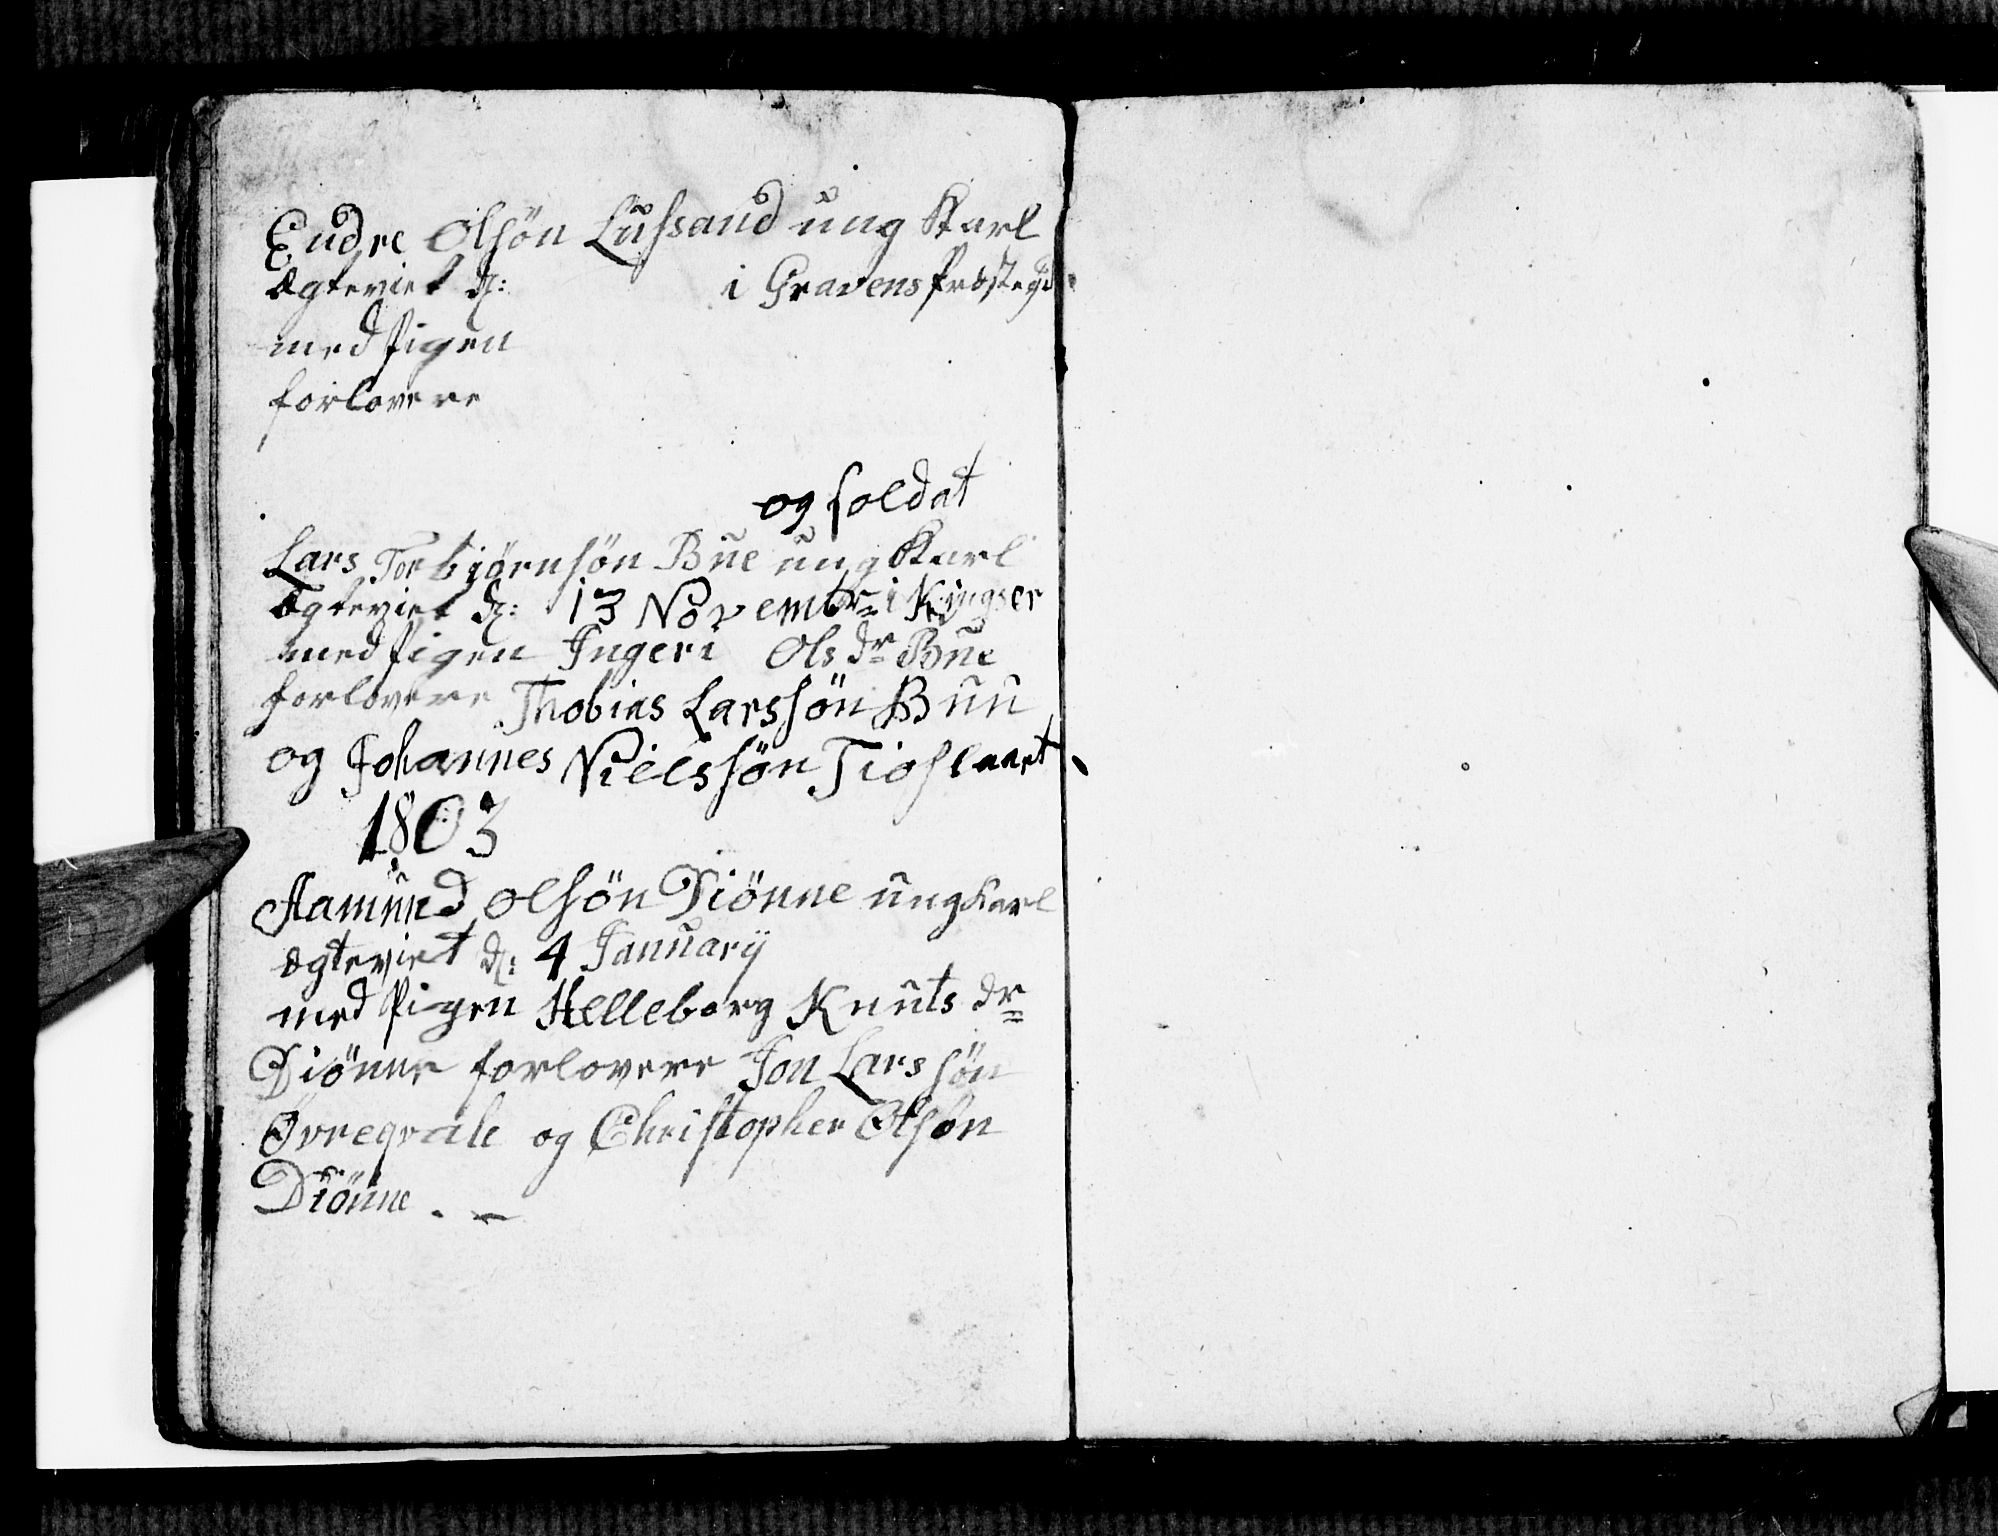 Endre Olsön Lussand ung Karl
Ægteviet d: i Gravens Præstegd
med Pigen
forlovere
og soldat
Lars Torbjörnsön Bue ung Karl
Ægteviet d: 13 Novembr i Kingser
med Pigen Ingeri Ols dr Bue
forlovere Thobias Larssön Buu
og Johannes Nielssön Tioflaat
1803
Aamund Olsön Diönne ungkarl
ægteviet d: 4 Januarÿ
med Pigen Helleborg Knuts dr
Diönne forlovere Jon Larssön
Øvreqvale og Christopher Olsön
Diönne . -